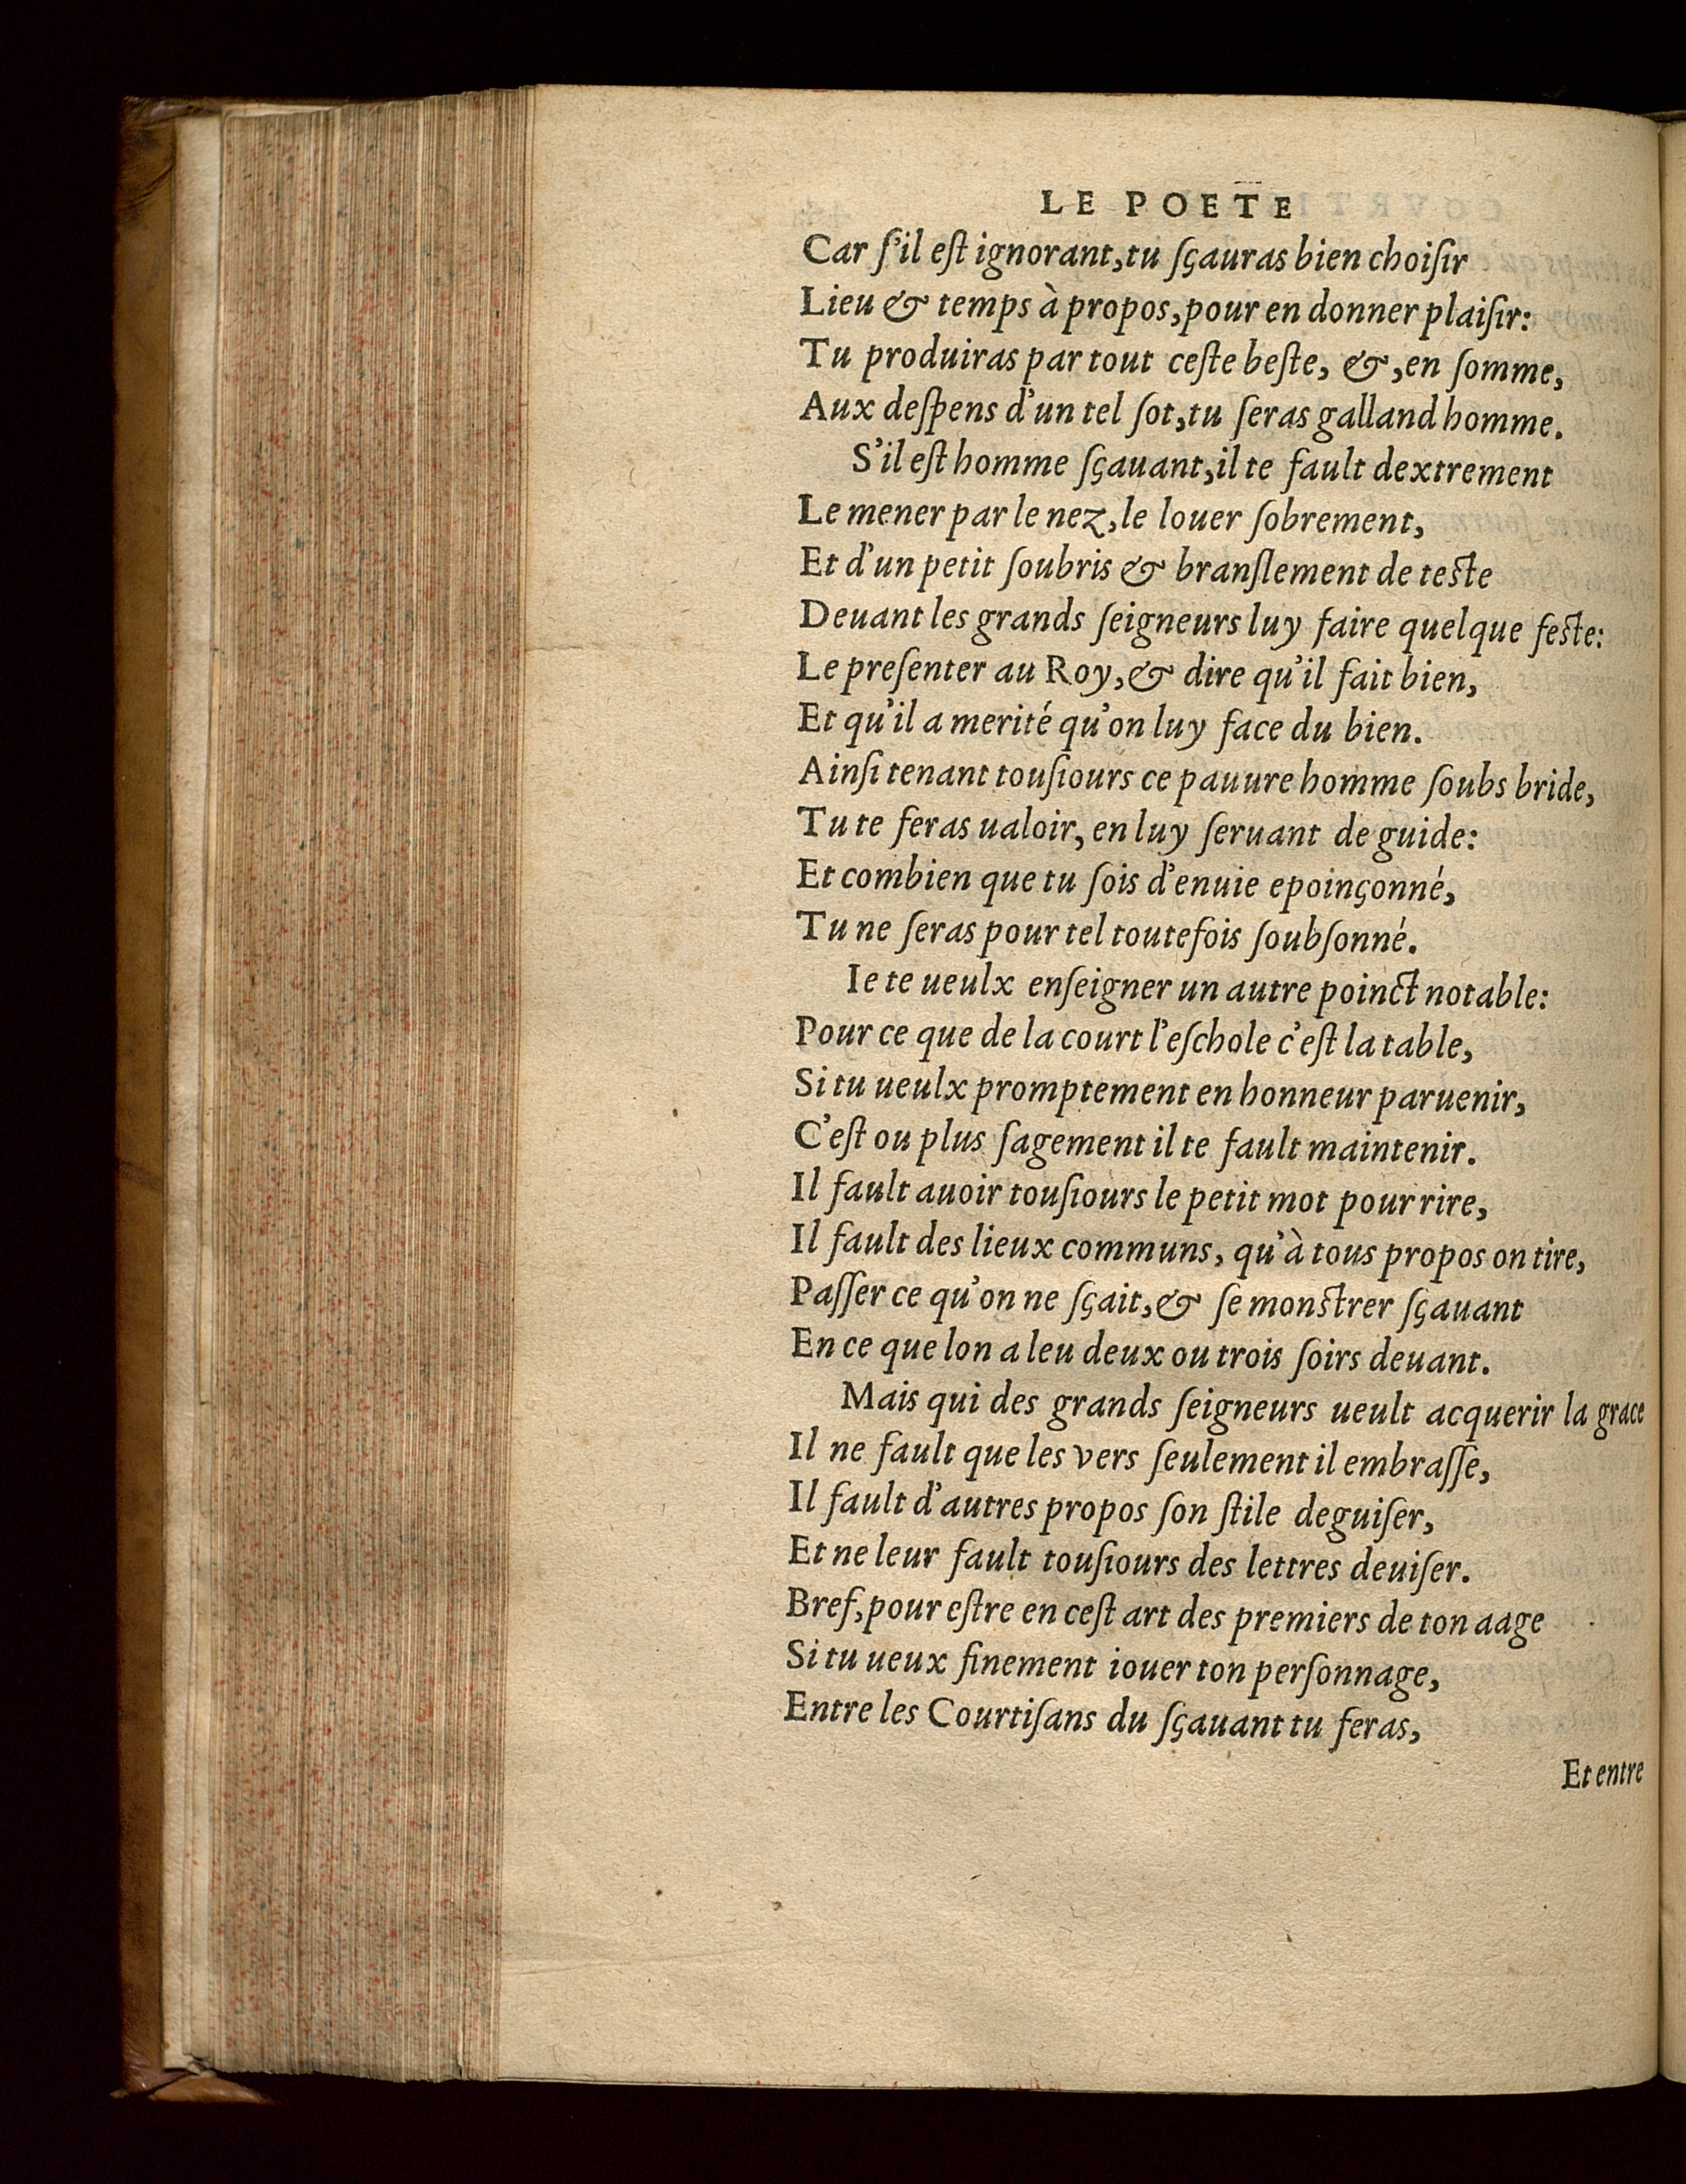 LE POETE
Car ſ'il eſt ignorant, tu ſçauras bien choiſir
Lieu & temps à propos, pour en donner plaiſir:
Tu produiras par tout ceſte beſte, &, en ſomme,
Aux deſpens d'un tel ſot, tu ſeras galland homme.
S'il eſt homme ſçauant, il te fault dextrement
Le mener par le nez, le louer ſobrement,
Et d'un petit ſoubris & branſlement de teſte
Deuant les grands ſeigneurs luy faire quelque feſte:
Le preſenter au Roy, & dire qu'il fait bien,
Et qu'il a merité qu'on luy face du bien.
Ainſi tenant touſiours ce pauure homme ſoubs bride,
Tu te feras ualoir, en luy ſeruant de guide:
Et combien que tu ſois d'enuie epoinçonné,
Tu ne ſeras pour tel toutefois ſoubſonné.
Ie te ueulx enſeigner un autre poinct notable:
Pour ce que de la court l'eſchole c'eſt la table,
Si tu ueulx promptement en honneur paruenir,
C'eſt ou plus ſagement il te fault maintenir.
Il fault auoir touſiours le petit mot pour rire,
Il fault des lieux communs, qu'à tous propos on tire,
Paſſer ce qu'on ne ſçait, & ſe monſtrer ſçauant
En ce que lon a leu deux ou trois ſoirs deuant.
Mais qui des grands ſeigneurs ueult acquerir la grace
Il ne fault que les vers ſeulement il embraſſe,
Il fault d'autres propos ſon ſtile deguiſer,
Et ne leur fault touſiours des lettres deuiſer.
Bref, pour eſtre en ceſt art des premiers de ton aage
Si tu ueux finement iouer ton perſonnage,
Entre les Courtiſans du ſçauant tu feras,
Et entre